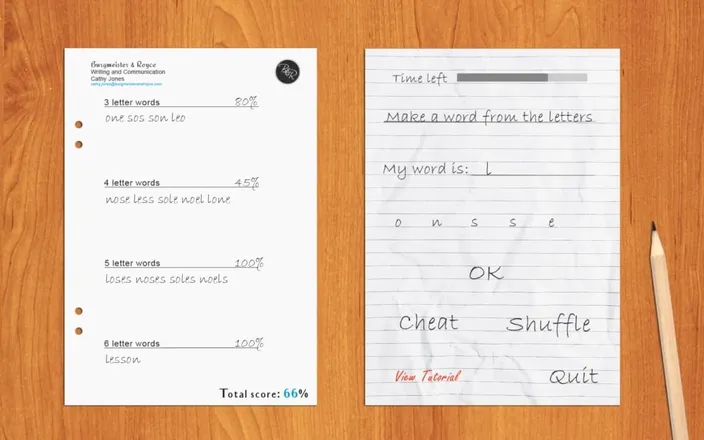 Burgmeister & Royce
Writing and Communication
Cathy Jones
3 letter words 80%
one sos son leo
4 letter words 45%
nose less sole noel lone
5 letter words 100%
loses noses soles noels
6 letter words 100%
lesson
Total score: 66%
Time left
Make a word from the letters
My word is: l
o n s s e
OK
Cheat Shuffle
View Tutorial Quit